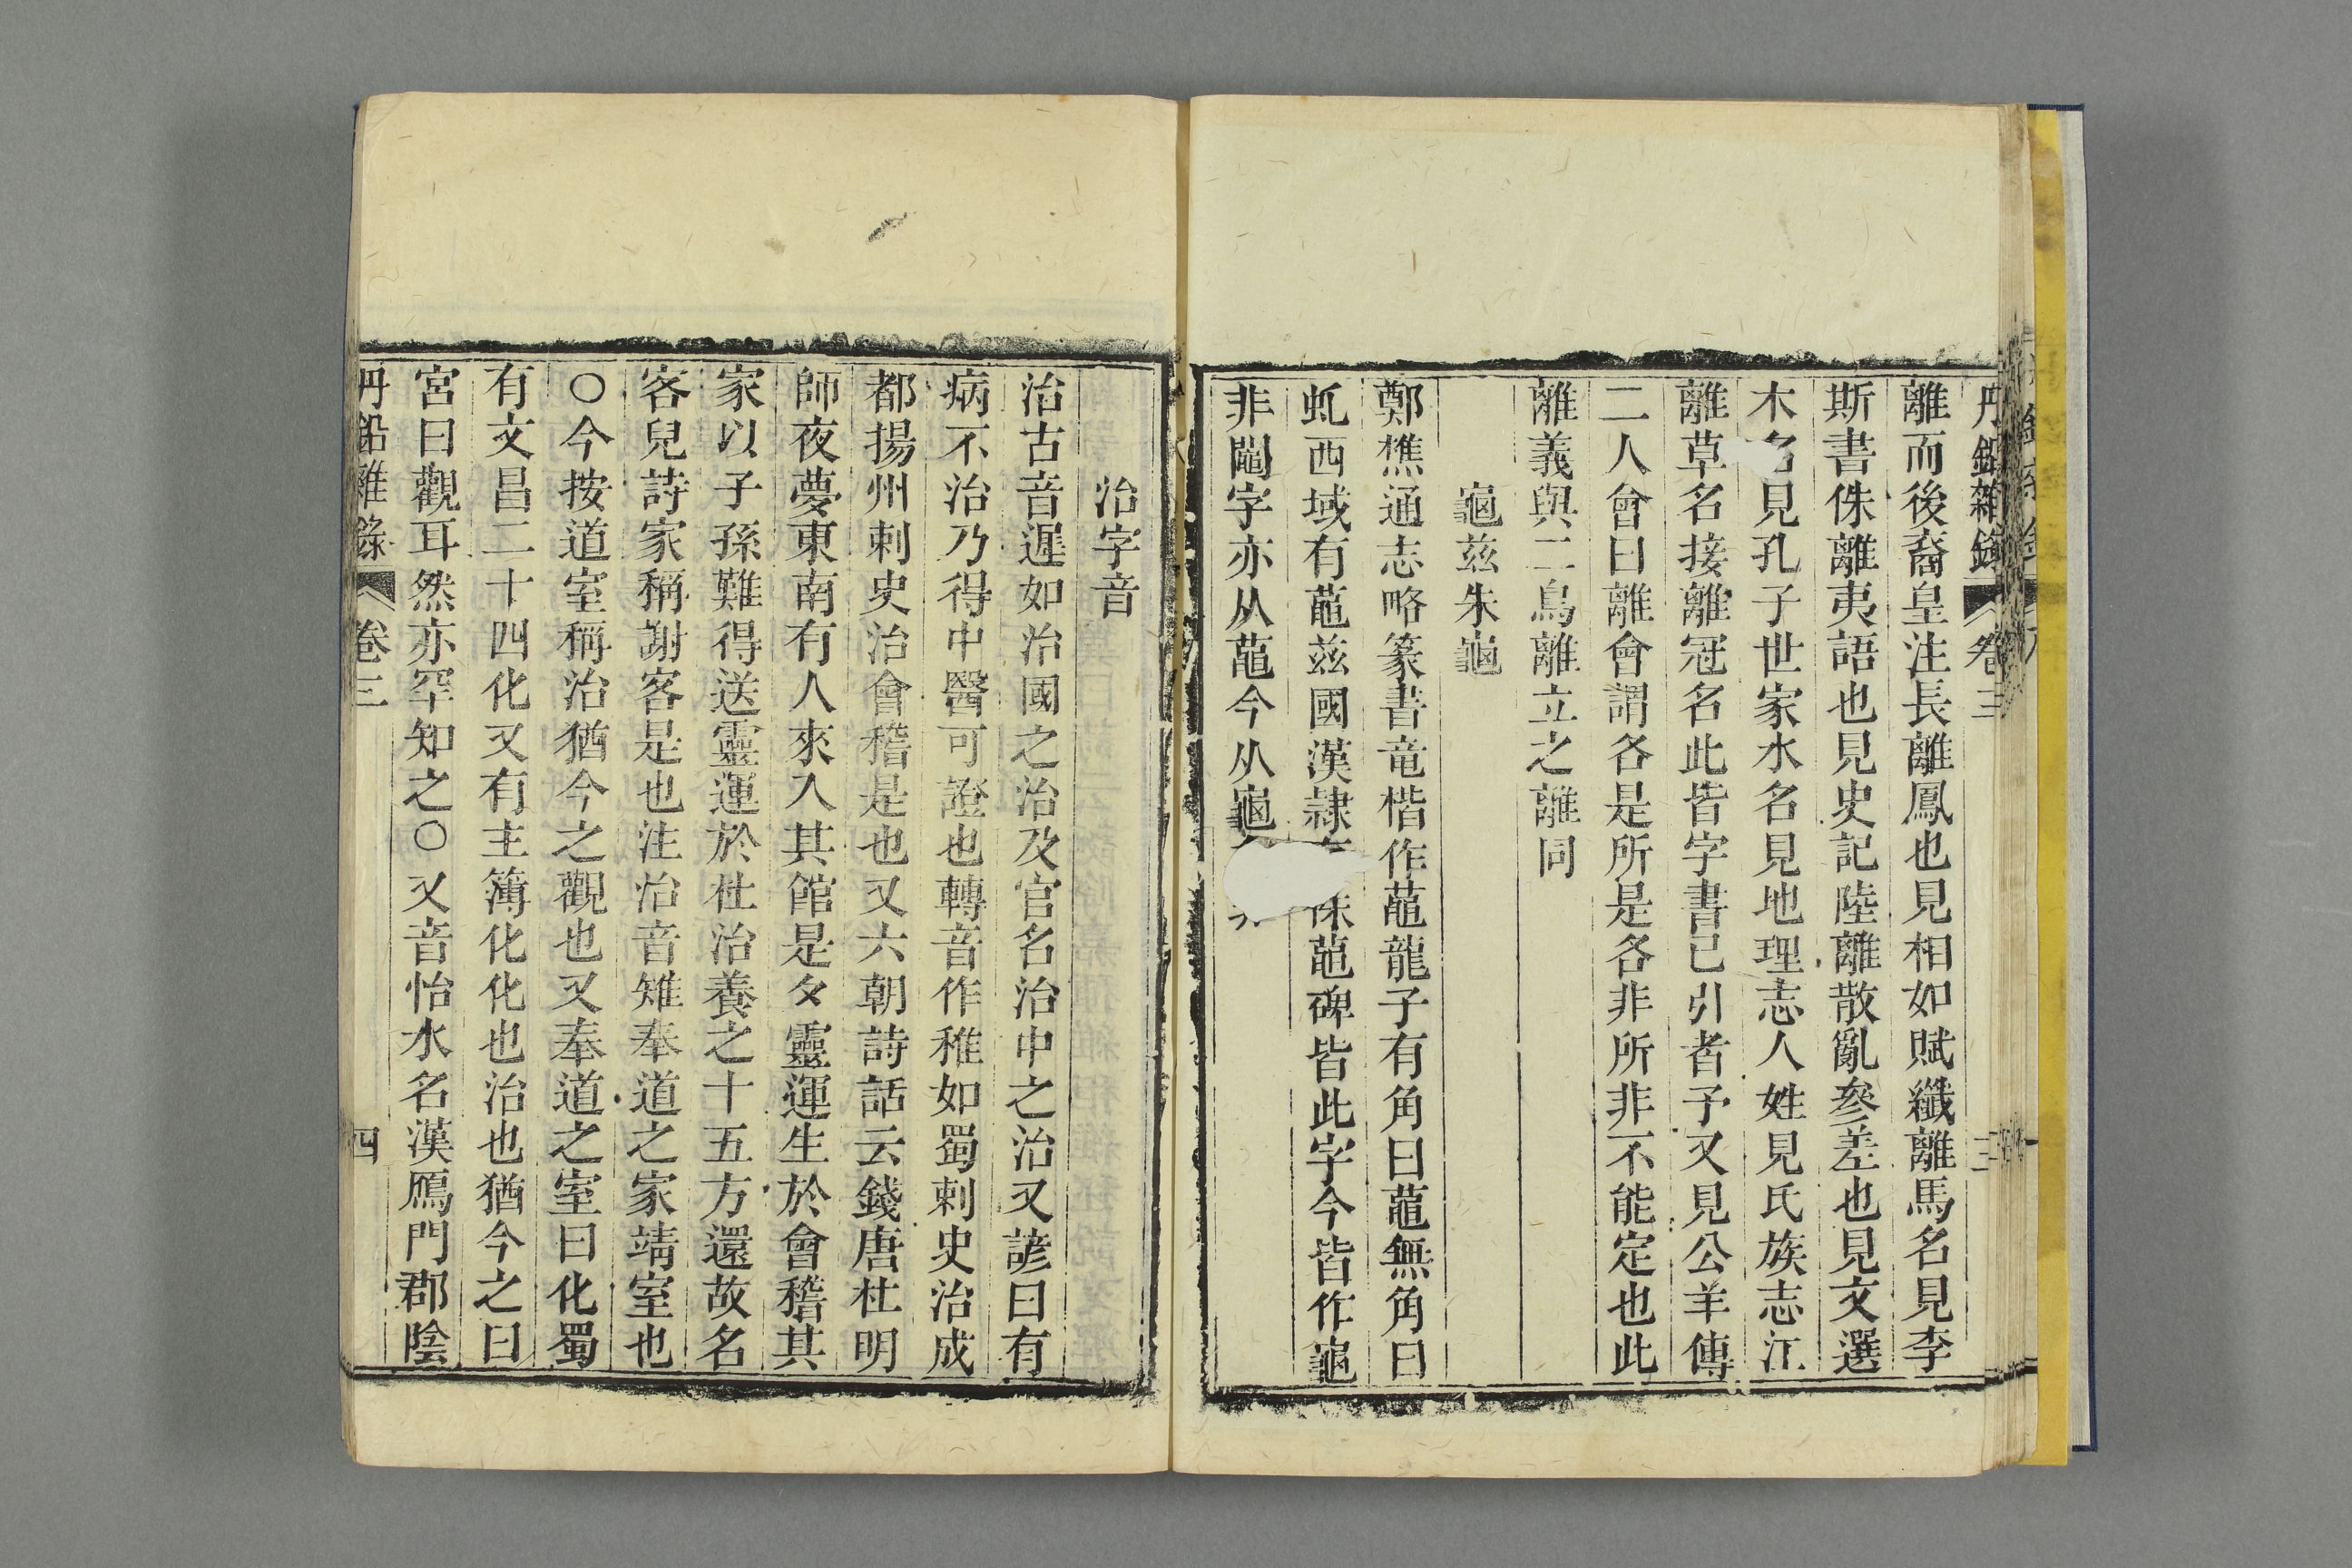 丹鉛雜錄 卷三 三
離而後裔皇注長離鳳也見相如賦纖離馬名見李
斯書侏離夷語也見史記陸離散亂參差也見文選
木名見孔子世家水名見地理志人姓見氏族志江
離草名接離冠名此皆字書已引者予又見公羊傳
二人會曰離會謂各是所是各非所非不能定也此
離義與二鳥離立之離同
龜茲朱龜
鄭樵通志略篆書竜楷作龍子有角曰無角曰
虬西域有茲國漢隸碑皆此字今皆作龜
非鬮字亦从今从龜
治字音
治古音遲如治國之治及官名治中之治又諺曰有
病不治乃得中醫可證也轉音作稚如蜀刺史治成
都揚州刺史治會稽是也又六朝詩話云錢唐杜明
師夜夢東南有人來入其館是夕靈運生於會稽其
家以子孫難得送靈運於杜治養之十五方還故名
客兒詩家稱謝客是也注治音雉奉道之家靖室也
○今按道室稱治猶今之觀也又奉道之室曰化蜀
有文昌二十四化又有主簿化化也治也猶今之曰
宮曰觀耳然亦罕知之○又音怡水名漢鴈門郡陰
丹鉛雜錄 卷三 四